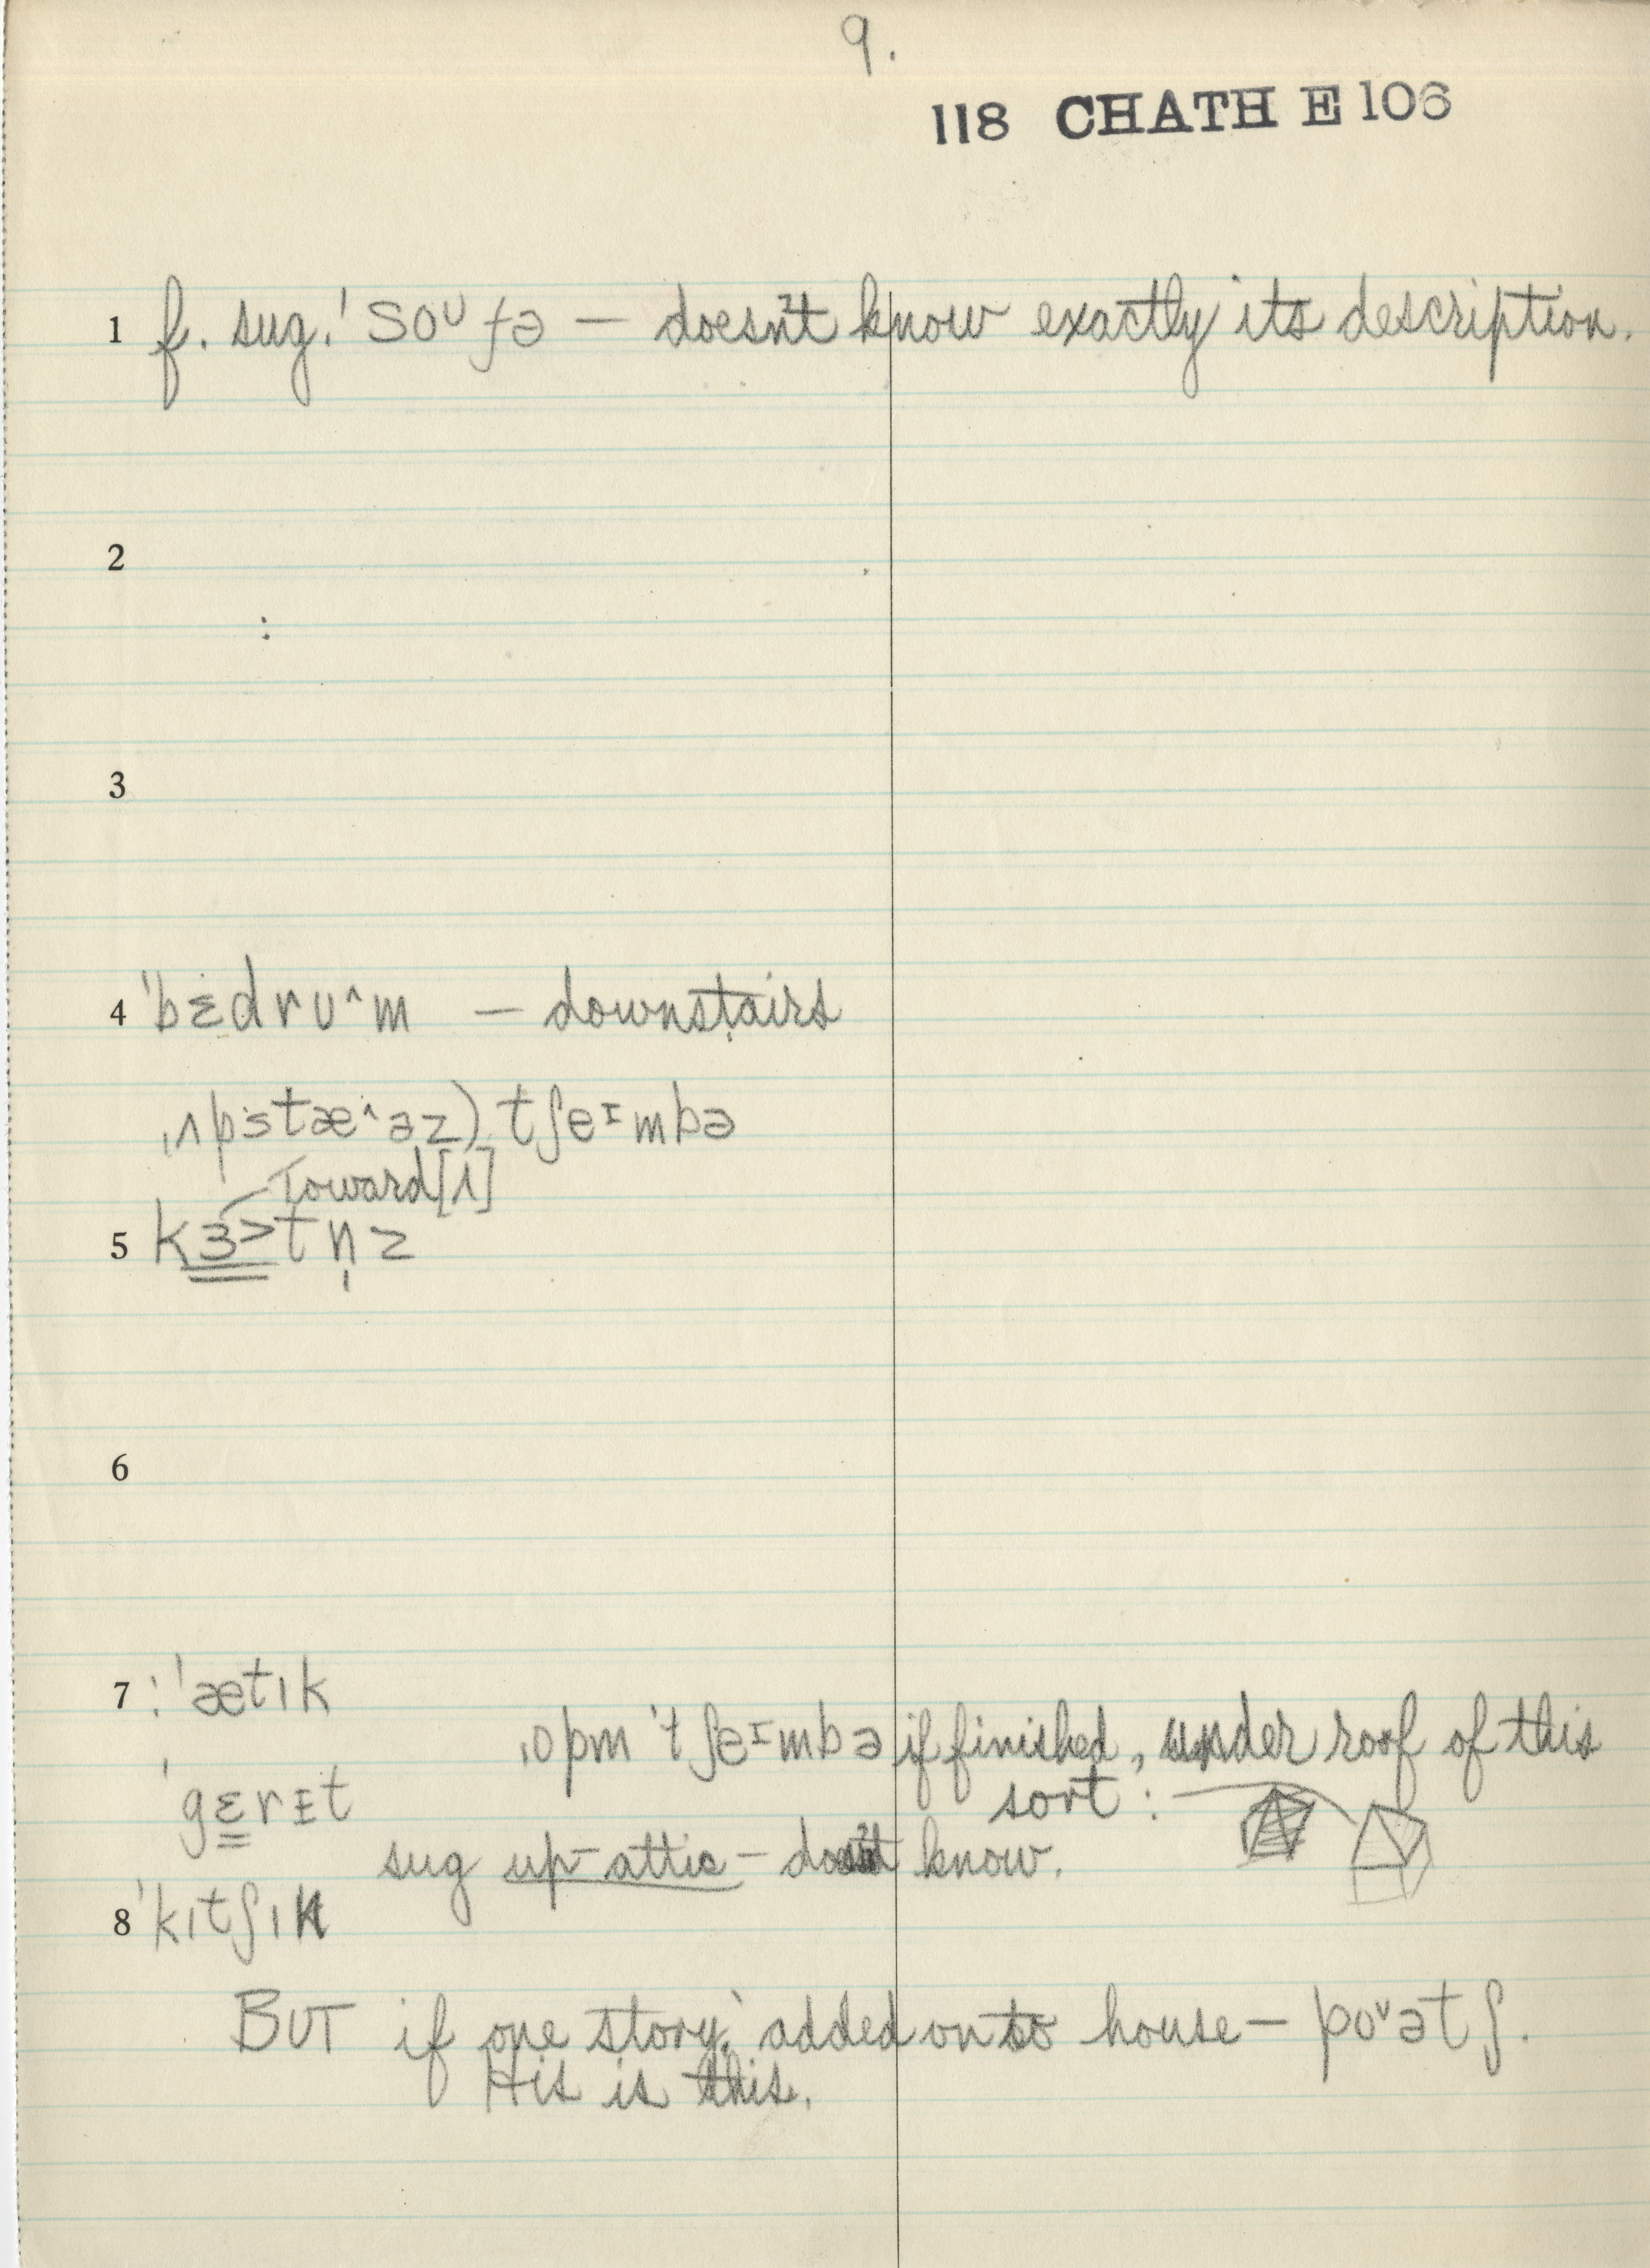 9.
118 CHATH E 106
1 f. sug. ˈsoᶷfə — doesn't know exactly its description.
2
:
3
4 ˈbɛdrᴜ^m — downstairs
ˌʌpstæ^əz) tʃeɪmbə
Toward [ʌ]
5 kɜ>tn̩z
6
7 : ˈætɪk
ˌopm ˈtʃeɪmbə if finished, under roof of this
sort :
ˈgɛrᴇt
sug up-attic — doesn't know.
8 ˈkɪtʃɪn
BUT if one story, added onto house — poᵛətʃ.
His is this.